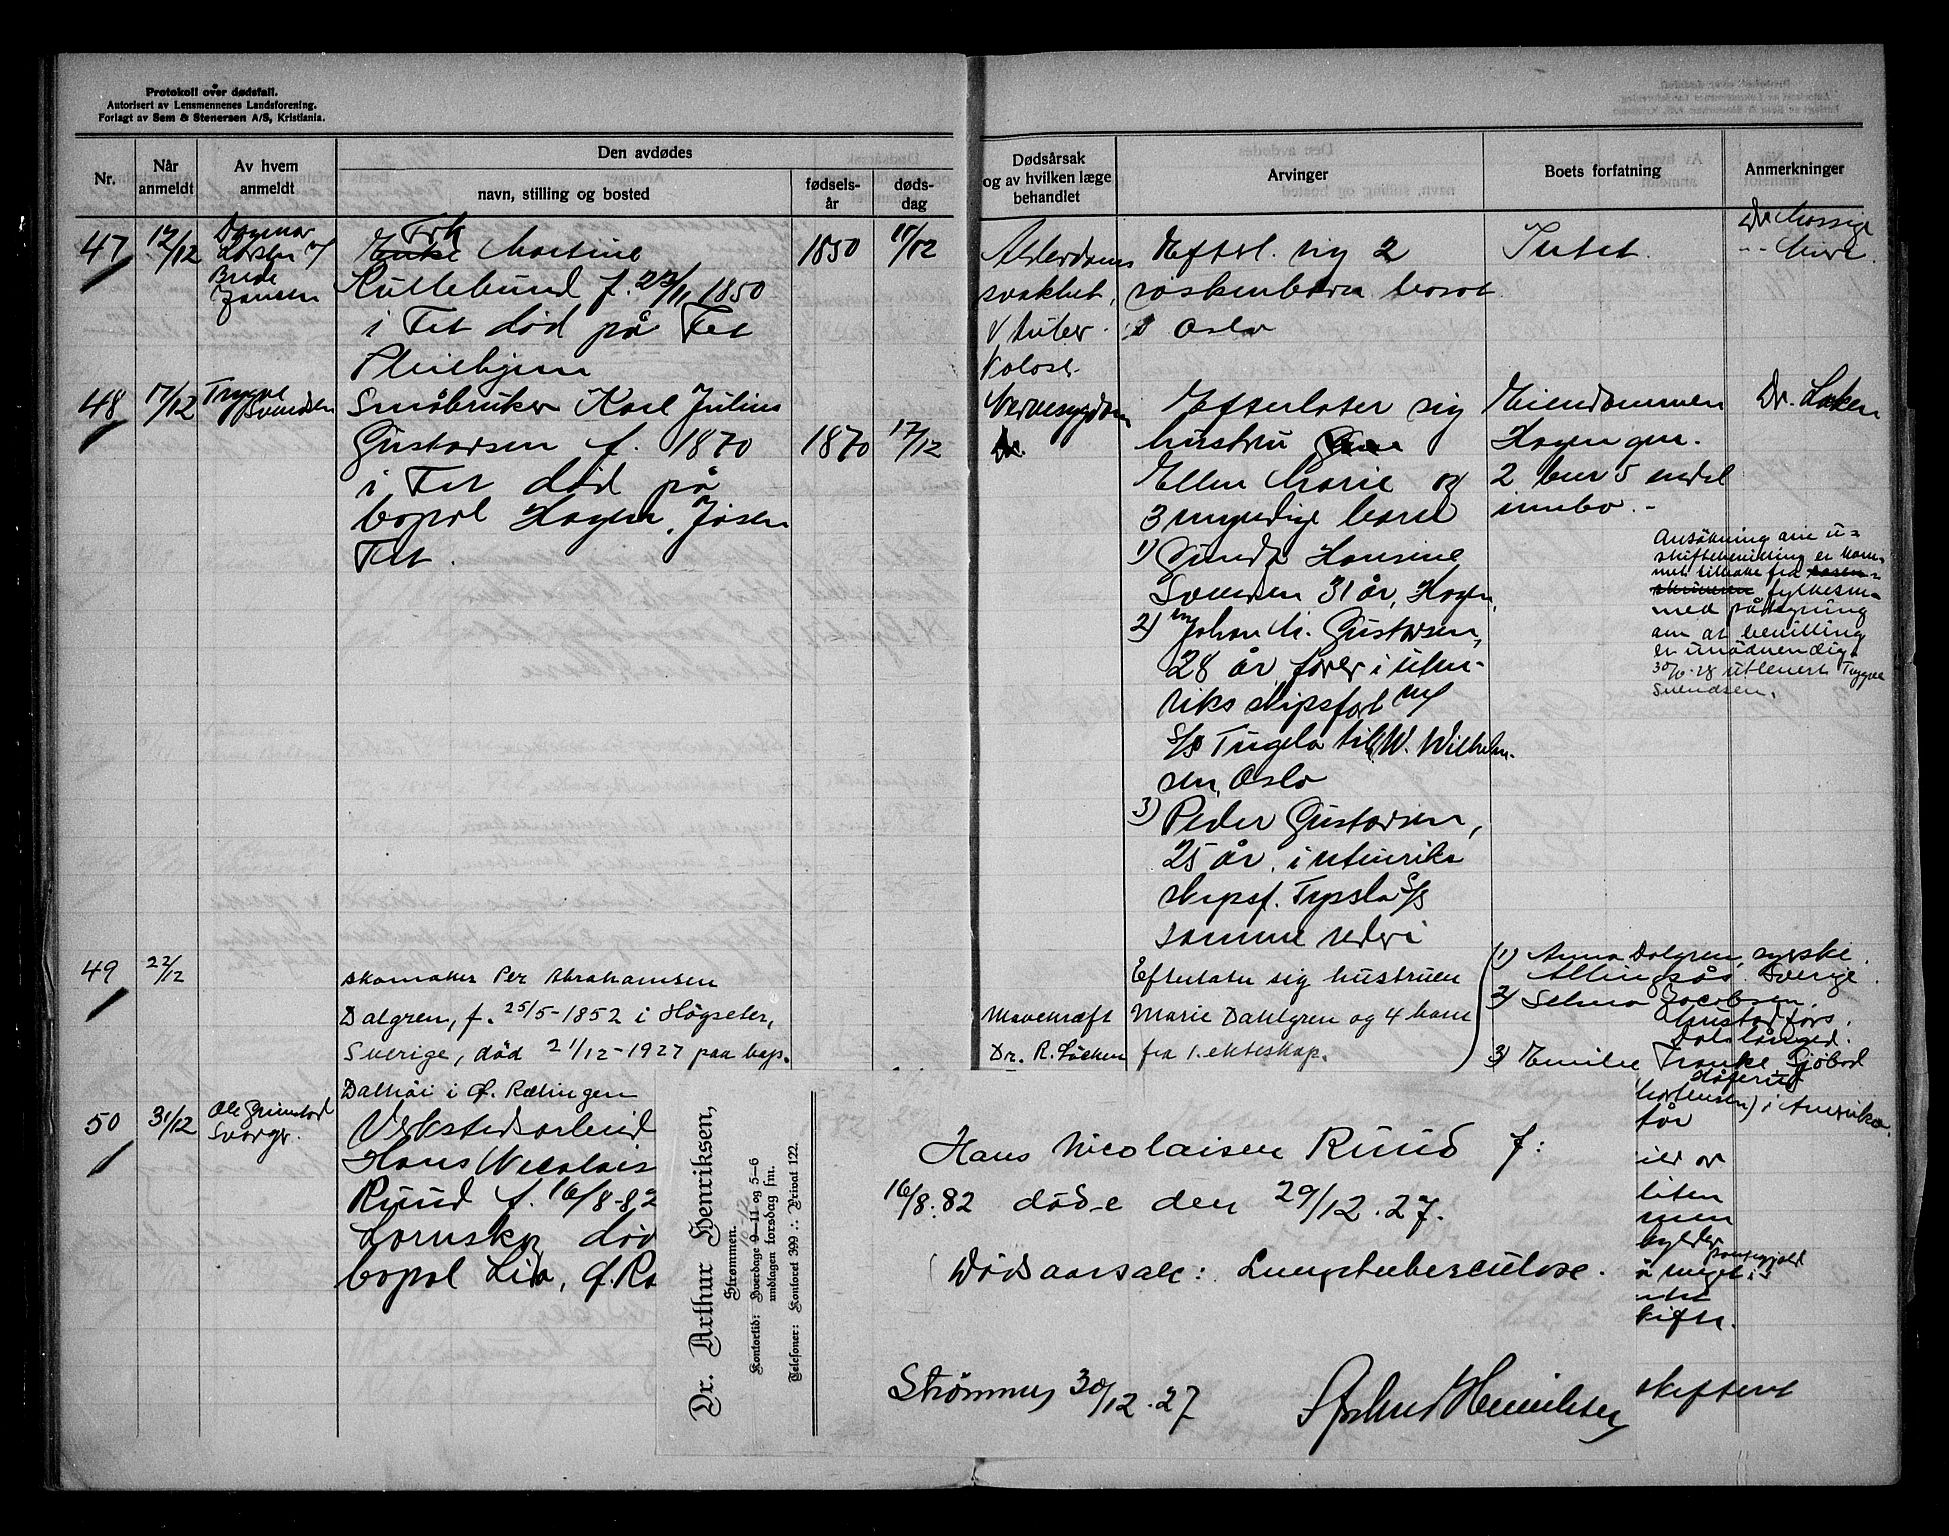 Protokoll over dødsfall.
Autorisert av Lensmennenes Landsforening.
Forlagt av Sem & Stenersen A/S, Kristiania.
Nr.
Når anmeldt
Av hvem anmeldt
Den avdødes
navn, stilling og bosted
fødsels-
år
døds-
dag
Dødsårsak
og av hvilken læge
behandlet
Arvinger
Boets forfatning
Anmerkninger
47
12/12
Dagmar
Jansen
Frk
Enke Martine
f. 23/11 1850
i Fet død på Fet
Pleiehjem
1850
11/12
Alderdoms
svakhet,
Efterl. sig 2
søskenbarn bosat
i Oslo
Intet.
48
17/12
Trygve
Svendsen
Småbruker Karl Julius
Gustavsen f. 1870
i Fet død på
bopel Hagen, Jåsen
Fet.
1870
17/12
Nervesygdom
Dr.
Efterlater sig
hustru
Ellen Marie og
3 myndige barn
1) Gunda Hansine
Svendsen 31 år, Hagen,
2) Johan M. Gustavsen,
28 år, fører i uten-
riks skipsfart m/
S/S Tugela til W. Wilhelm-
sen, Oslo
3) Peder Gustavsen,
25 år, i utenriks
skipsf. S/S
samme rederi
Eiendommen
Hagen gnr.
2 bnr 5 endel
innbo. -
Dr. Løken
Ansøkning om u-
skiftebevilling er kom-
met tilbake fra
med påtegning
om at bevilling
er unødvendig.
30/6-28 utlevert Trygve
Svendsen.
49
22/12
Skomaker Per Abrahamsen
Dalgren, f. 25/5-1852 i Högseter,
Sverige, død 21/12-1927 paa bop.
Dalhöi i Ø. Rælingen
Mavekræft
Dr. R. Löcken
Efterlater sig hustruen
Marie Dahlgren og 4 barn
fra 1. ekteskap.
1) Anna Dalgren, syerske
Allingsås, Sverige.
2) Selma Jacobsen,
3) Emilie
i Amerika.
50
31/12
Ole Grimstad
Svorgr.
Verkstedsarbeid
Hans Nicolais
Ruud f. 16/8-82
Lørenskog død
bopel Lia, Ø. Ra
liten
skifte.
skiftent
Dr. Arthur Henriksen,
Strømmen.
Kontortid: Hverdage 9–11 og 5–6
undtagen torsdag fm.
Telefoner: Kontoret 399 :: Privat 122.
Hans Nicolaisen Ruud f:
16/8.82 døde den 29/12.27.
Dødsaarsak: Lungetuberculose.
Strømmen 30/12.27
Arthur Henriksen